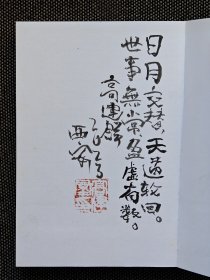 日月交替，天道轮回。
世事無常盈虚有数。
高建群
2023
西安